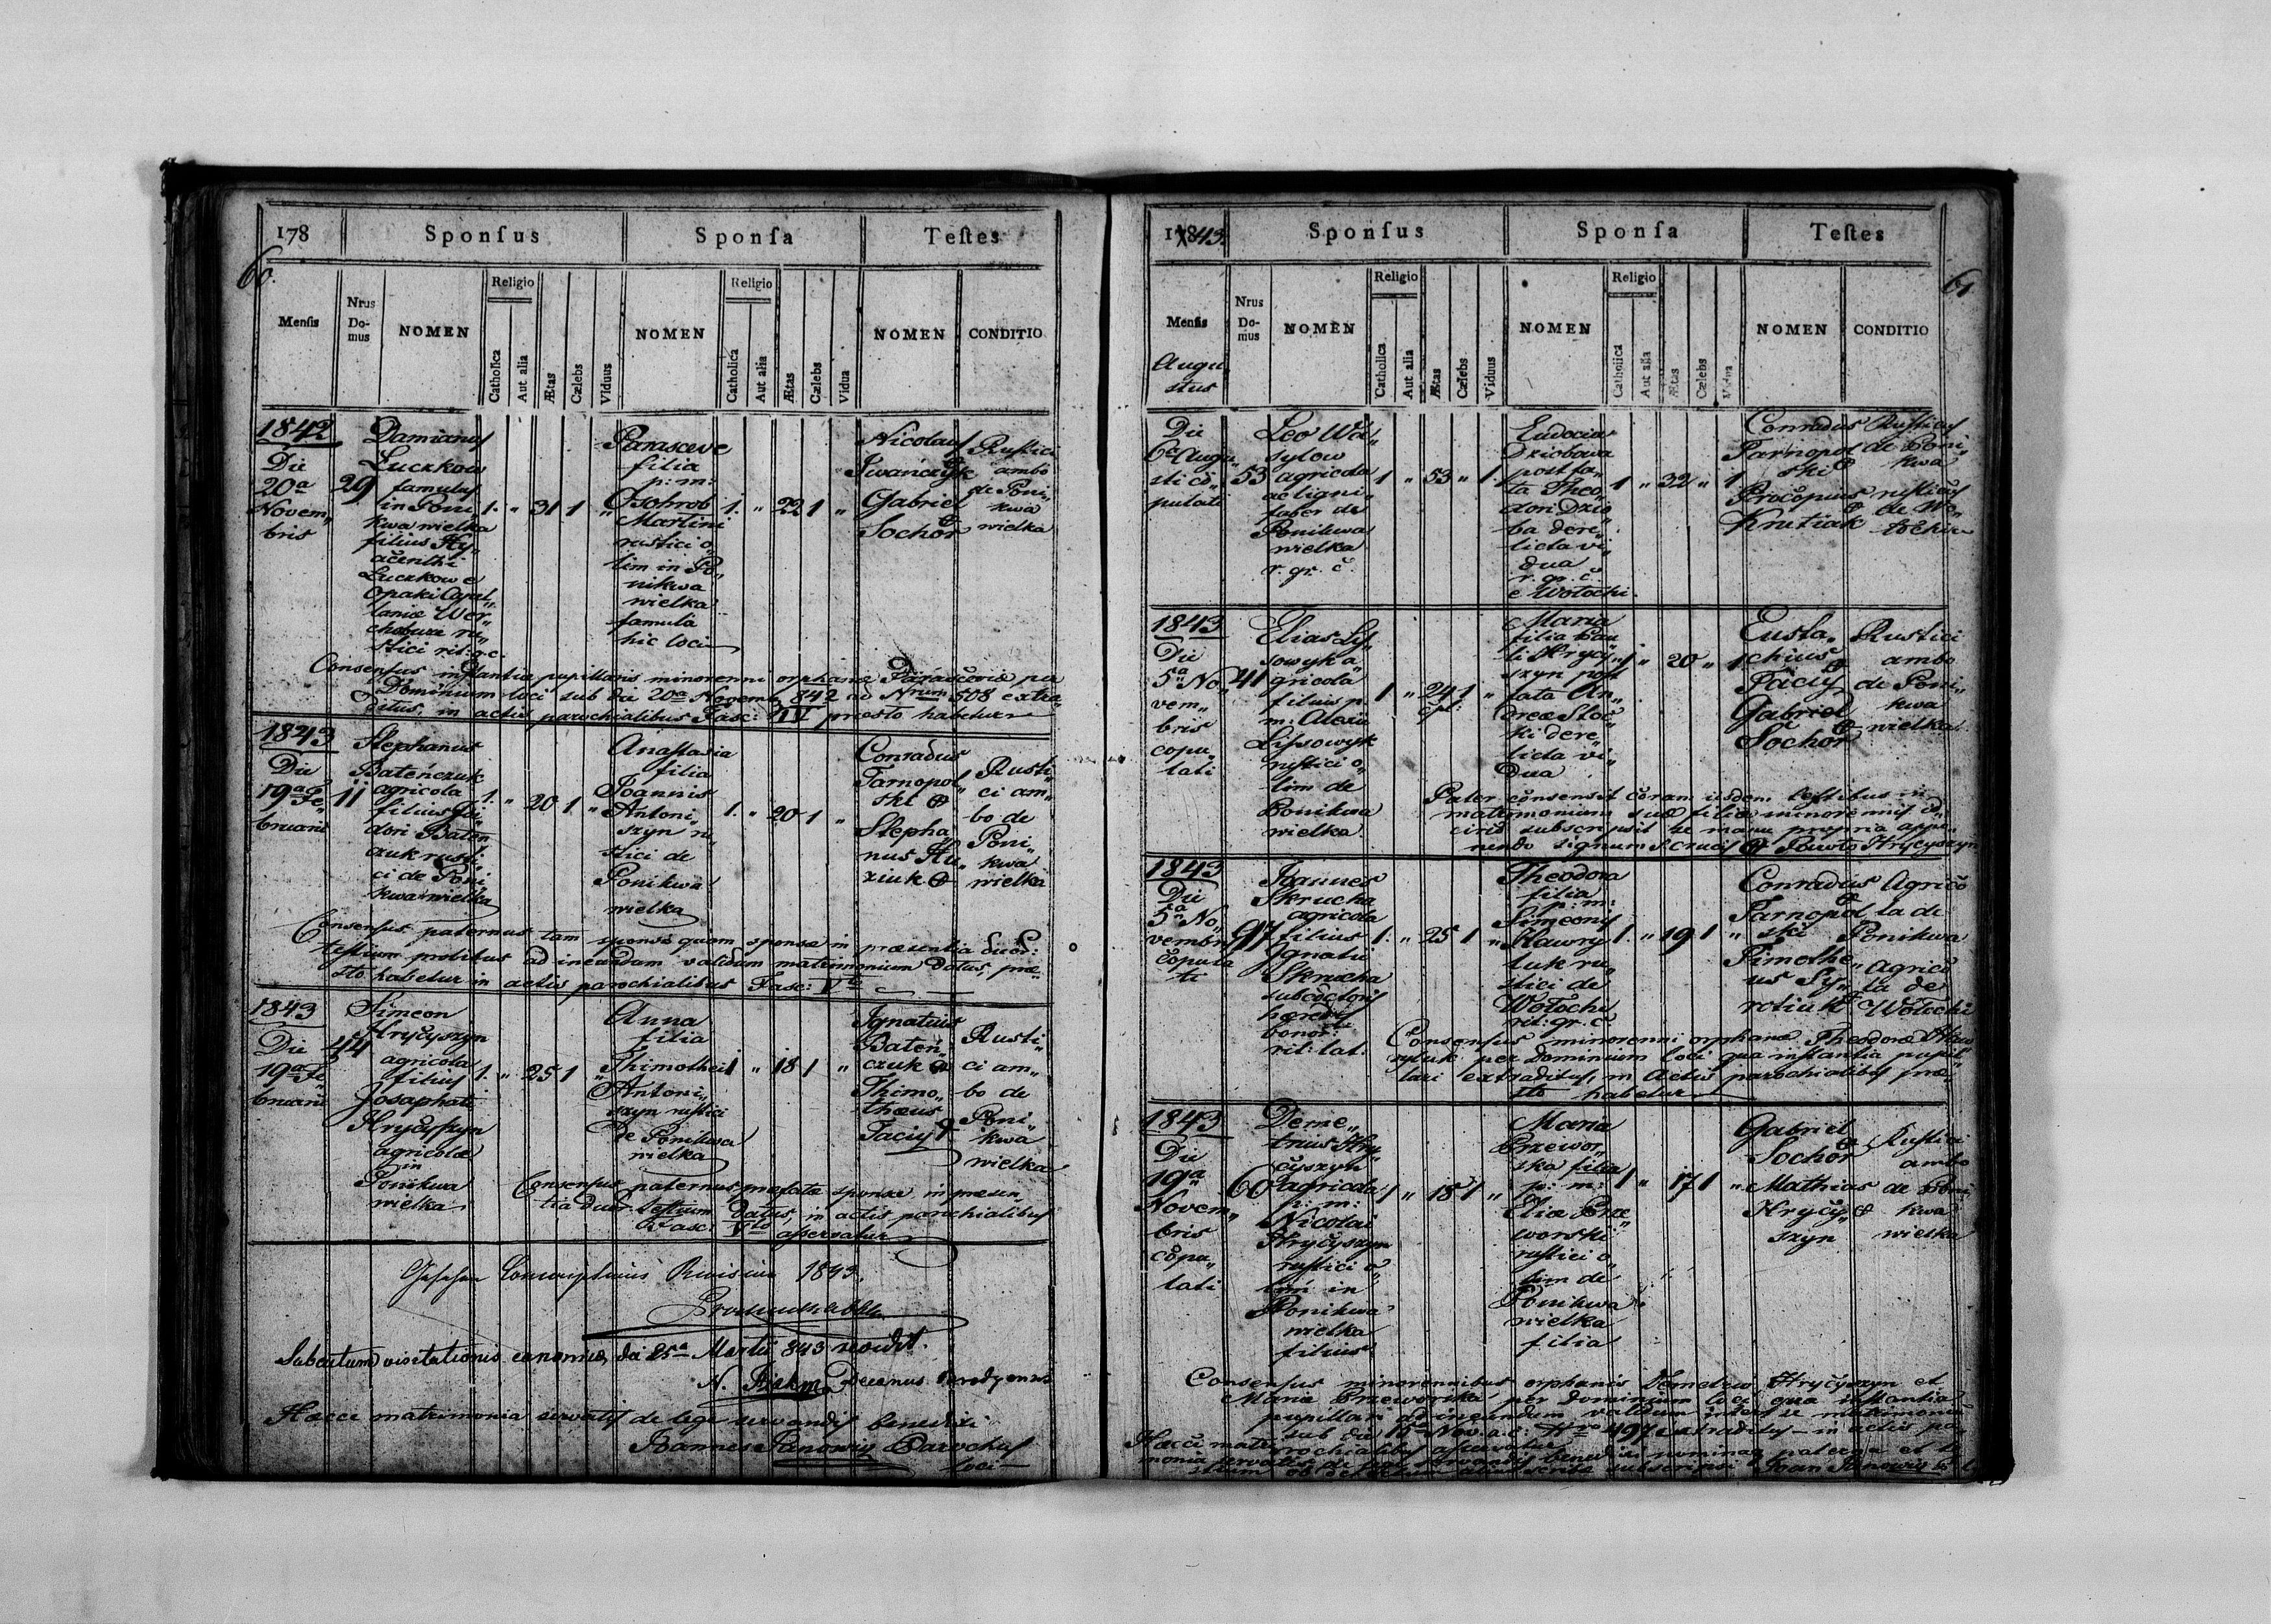 178 Sponſus Sponſa Teſtes
60.
Menſis Nrus Domus NOMEN Religio Catholica Aut alia Ætas Cælebs Viduus NOMEN Religio Catholica Aut alia Ætas Cælebs Vidua NOMEN CONDITIO
1842
Die
20a
Novem„
bris
29
Damianus
Luczkow
famulus
in Poni
kwa wielka
filius Hy„
acenthi
Luczkow e
Opaki Capel„
laniæ Wer„
chobuza ru„
stici rit: g.c.
1. „ 31 1 „
Parasceve
filia
p: m:
Martini
rustici o„
lim in Po„
nikwa
wielka
famula
hic loci
1. „ 22 1 „
Nicolaus
Iwańczyk
Gabriel
Sochor
Rustici
ambo
de Poni„
kwa
wielka
Consensus instantia pupillaris minorenni orphanæ Parasceviæ per
Dominium loci sub die 20a Novemb. 842 ad Nrum 508 extra„
ditus, in actis parochialibus Fasc: IV præsto habetur
1843
Die
19a Fe„
bruarii
11
Stephanus
Bateńczuk
agricola
filius Isi„
dori Bateń
czuk rusti„
ci de Poni
kwa wielka
1. „ 20 1 „
Anastasia
filia
Joannis
Antoni„
szyn ru„
stici de
Ponikwa
wielka
1. „ 20 1 „
Conradus
Tarnopol„
ski
Stepha„
nus Hu„
ziuk
Rusti„
ci am„
bo de
Poni„
kwa
wielka
Consensus paternus tam sponsi quam sponsæ in præsentia duor:
testium probatus ad ineundum validum matrimonium datus, præ„
sto habetur in actis parochialibus Fasc: Vto
1843
Die
19a Fe„
bruarii
44
Simeon
Hryčyszyn
agricola
filius
Josaphati
Hryčyszyn
agricolæ
in
Ponikwa
wielka
1. „ 25 1 „
Anna
filia
Thimothei
Antoni„
szyn rustici
de Ponikwa
wielka
1 „ 18 1 „
Ignatius
Bateń„
czuk
Thimo„
theus
Taciy
Rusti„
ci am„
bo de
Poni„
kwa
wielka
Consensus paternus præfatæ sponsæ in præsen„
tia duor: testium datus, in actis parochialibus
Fasc: Vto asservatur
1843.
Sub actum visitationis canonicæ die 25a Martii 843 revidit.
Decanus Brodyensis
Hæcce matrimonia servatis de lege servandis benedixi
Joannes Parochus
loci
1843 Sponſus Sponſa Teſtes
61
Menſis Nrus Domus NOMEN Religio Catholica Aut alia Ætas Cælebs Viduus NOMEN Religio Catholica Aut alia Ætas Cælebs Vidua NOMEN CONDITIO
Augu„
stus
Die
6a Augu„
sti co„
pulati
53
Leo Wa„
sylow
agricola
ac ligni„
faber de
Ponikwa
wielka
r. gr. c.
1 „ 53 „ 1.
Eudocia
Dziobowa
post fa„
ta Theo„
dori Dzio
ba dere„
licta vi„
dua
r. gr. c.
e Wołochi.
1 „ 32 „ 1
Conradus
Tarnopol
ski
Procopius
Krutiak
Rusticus
de Poni„
kwa
rusticus
de Wo„
łochi
1843
Die
5a No„
vem„
bris
copu„
lati
41
Elias Ly„
sowyk a„
gricola
filius p.
m: Alexii
Lissowyk
rustici o„
lim de
Ponikwa
wielka
1 „ 24 1 „
Maria
filia Pau„
li Hrycy„
szyn post
fata An„
dreæ Stoc„
ki dere„
licta vi„
dua
1 „ 20 „ 1
Eusta„
chius
Taciy
Gabriel
Sochor
Rustici
ambo
de Poni„
kwa
wielka
Pater consensit coram iisdem testibus in
matrimonium suæ filiæ minorennis
subscripsit se manu propria appo„
nendo signum S. crucis Pawło Hrycyszyn
1843
Die
5a No„
vembris
copula
ti
97
Joannes
Skrucha
agricola
filius
Ignatii
Skrucha
hæredis
bonor:
rit: lat:
1. „ 25 1 „
Theodora
filia
p: m:
Simeonis
Hawry
luk ru„
stici de
Wołochi
rit: gr. c.
1. „ 19 1 „
Conradus
Tarnopol
ski
Timothe„
us Sy„
rotiuk
Agrico
la de
Ponikwa
Agrico
la de
Wołochi
Consensus minorenni orphanæ Theodoræ Haw„
ryluk per Dominium loci qua instantia pupil„
lari extraditus, in Actis parochialibus præ„
sto habetur
1843
Die
19a
Novem„
bris
copu„
lati
60
Deme„
trius Hry„
čyszyn
agricola
p: m:
Nicolai
Hryčyszyn
rustici o„
lim in
Ponikwa
wielka
filius
1 „ 18 1 „
Maria
Przewor„
ska filia
p: m:
Eliæ Prze„
worski
rustici o„
lim de
Ponikwa
wielka
filia
1 „ 17 1 „
Gabriel
Sochor
Mathias
Hrycy„
szyn
Rustici
ambo
de Poni„
kwa
wielka
Consensus minorennibus orphanis Demetrio Hryčyszyn et
Mariæ Przeworska per Dominium loci qua instantia
pupillari ad ineundum validum inter se matrimonium
sub die 15a Nov: a.c: Nro 497 extraditus in actis pa„
rochialibus asservatur
Hæcce matri„
monia servatis de lege servandis benedixi nominaque paterna et te
stium ob subscripsi Joan